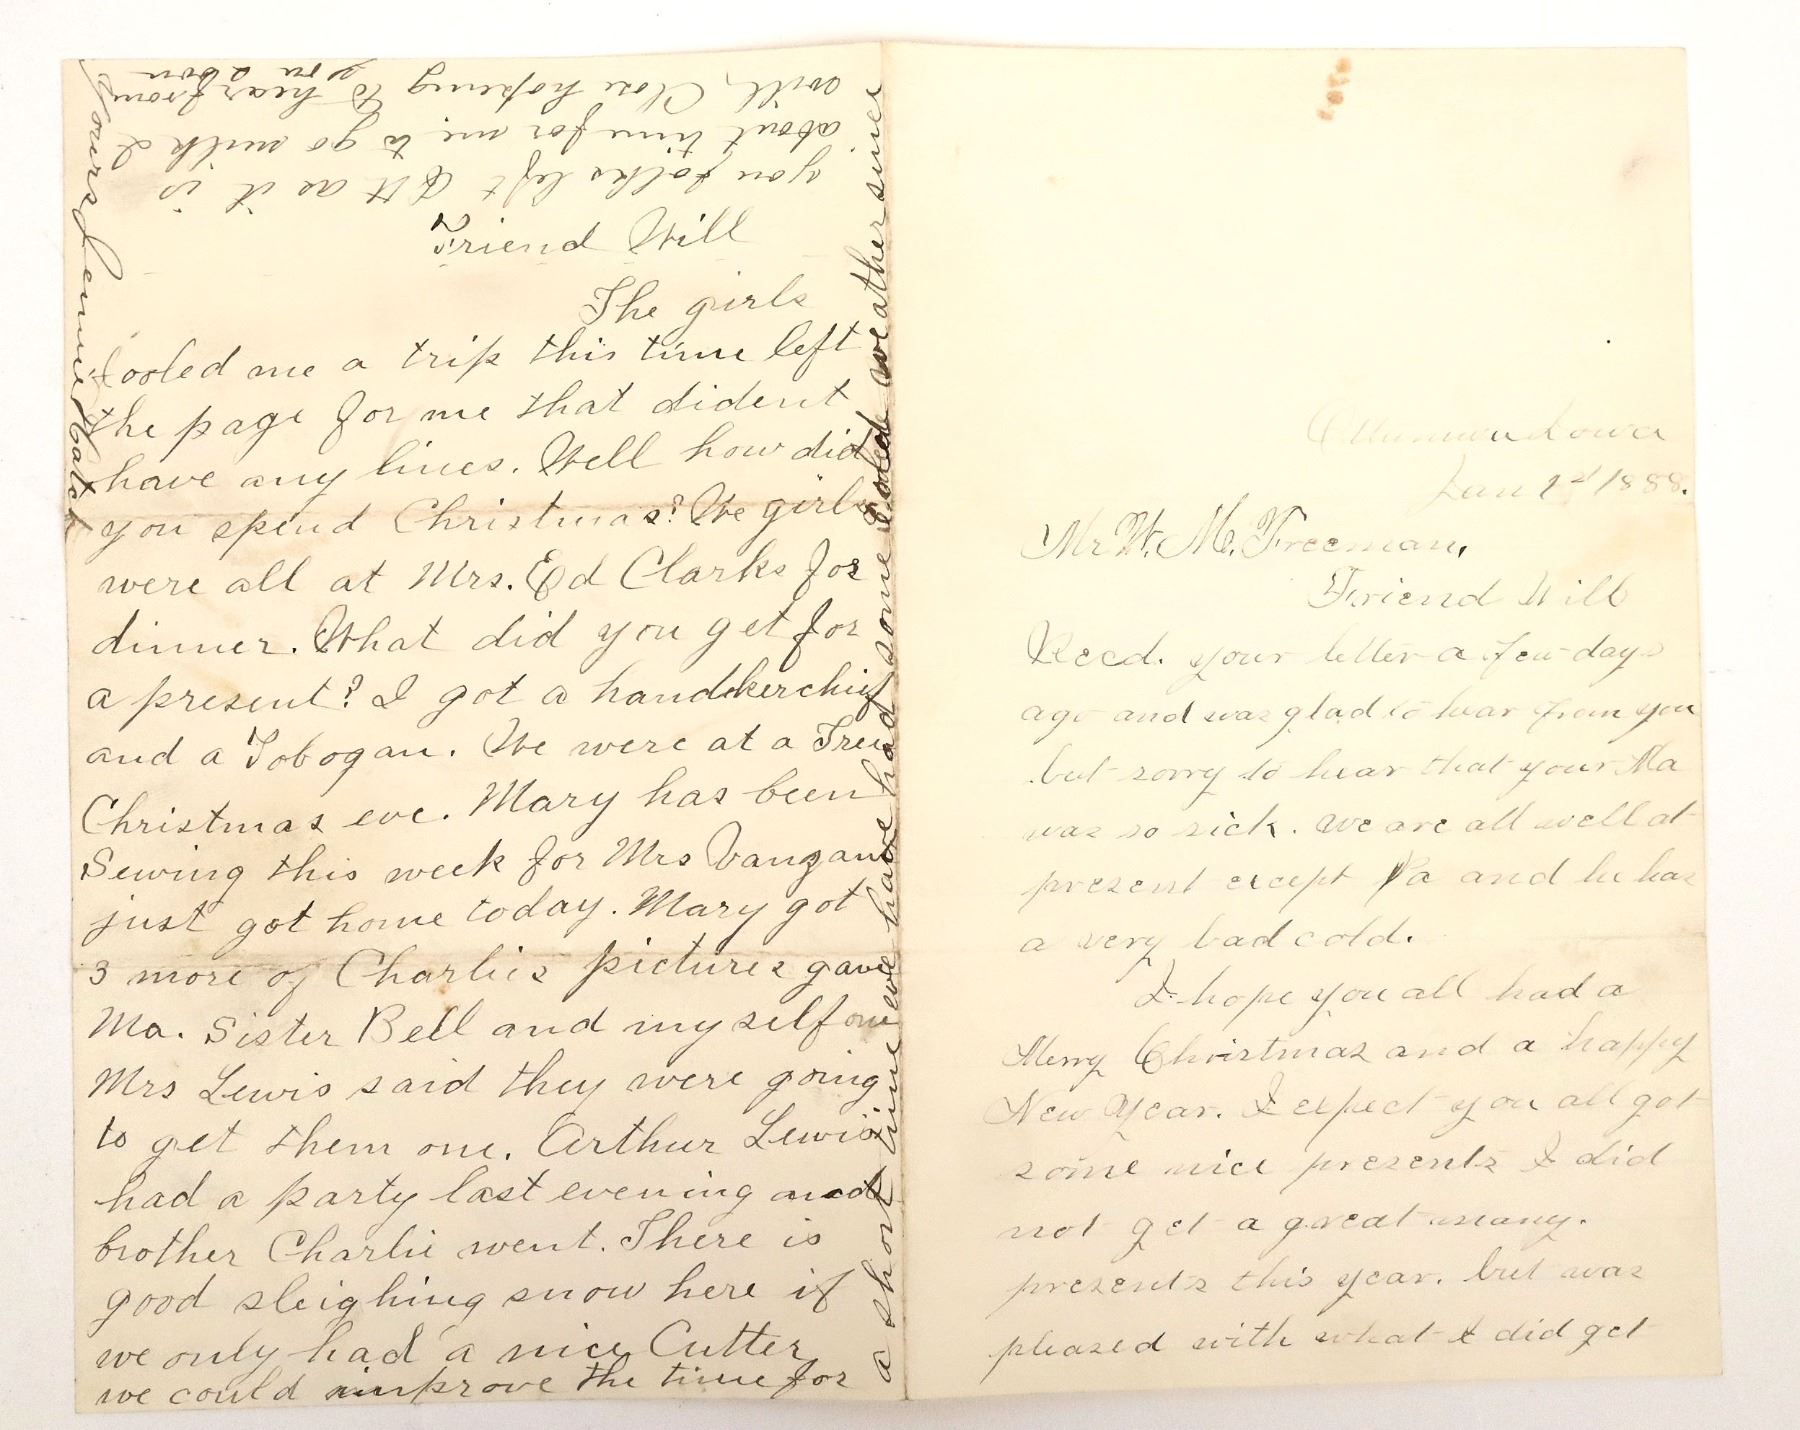 Ottumwa Iowa
Jan 1st 1888.
Mr W. M. Freeman,
Friend Will
Recd. your letter a few days
ago and was glad to hear from you
but sorry to hear that your Ma
was so sick. We are all well at
present except Pa and he has
a very bad cold.
I hope you all had a
Merry Christmas and a happy
New Year. I expect you all got
some nice presents I did
not get a great many.
presents this year. but was
pleased with what I did get
Friend Will
The girls
fooled me a trip this time left
the page for me that dident
have any lines. Well how did
you spend Christmas? We girls
were all at Mrs. Ed Clarks for
dinner. What did you get for
a present? I got a handkerchief
and a Tobogan. We were at a Tree
Christmas eve. Mary has been
Sewing this week for Mrs Vanzant
just got home today. Mary got
3 more of Charlies pictures gave
Ma. Sister Bell and my self one
Mrs Lewis said they were going
to get them one. Arthur Lewis
had a party last evening and
brother Charlie went. There is
good sleighing snow here if
we only had a nice Cutter
we could improve the time for
a short time we have had some cold weather since
you folks left Ott as it is
about time for me to go milk I
will Close hoping to hear from
you soon
Yours Jennie Hatch